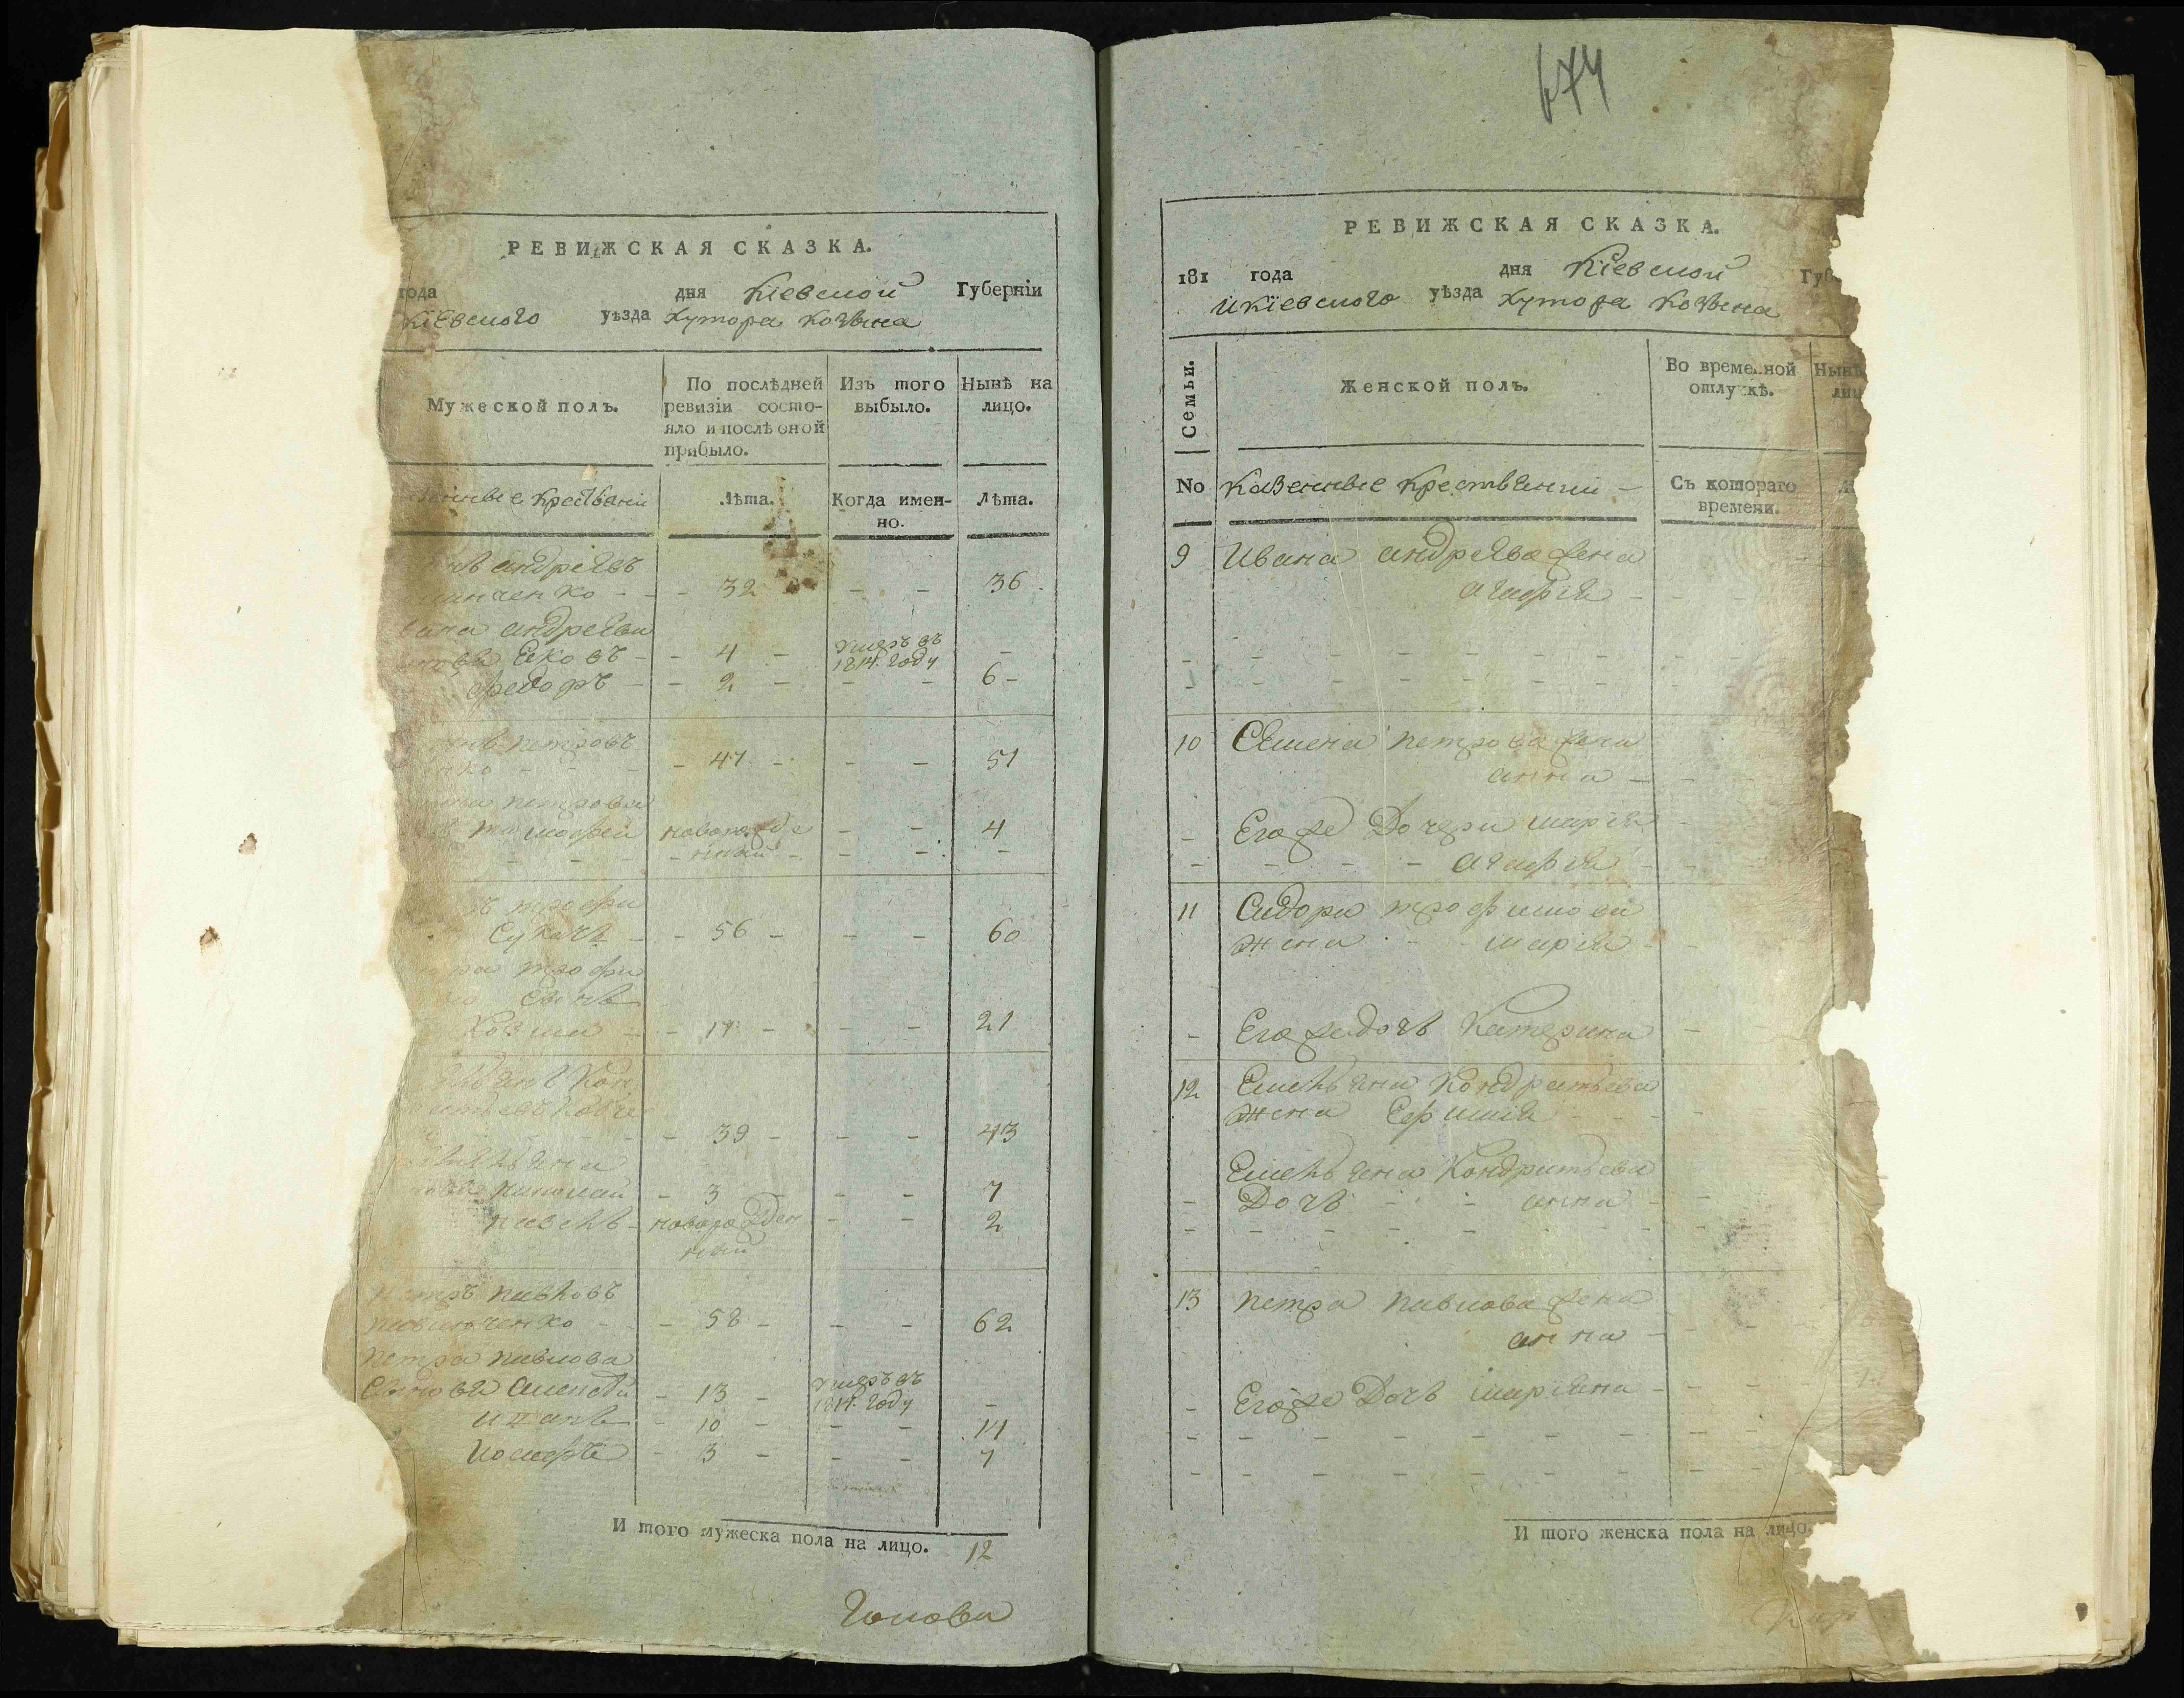 РЕВИЖСКАЯ СКАЗКА.
года дня Кіевской Губерніи
Кіевского уѣзда хутора Козына
Мужеской полъ.
По послѣдней ревизіи состо-
яло и послѣ оной
прибыло.
Изъ того выбыло.
Нынѣ на лицо.
крестьани
Лѣта.
Когда имен-
но.
Лѣта.
андреевъ
- - 32 - - 36
андреева
Яковъ - - 4 - умеръ въ 1814. году -
федоръ - - 2 - - - 6 -
петровъ
- 47 - - - 51
петрова
тимофей новорожде - - 4
нный - - - -
трофи
Сукачъ - - 56 - - - 60
трофи
Сынъ
Козма - - 17 - - - 21
Кон
- 39 - - - 43
николай - 3 - - 7
павелъ - новорожден - - 2
ный
петръ павловъ
павлюченко - - 58 - - - 62
петра павлова
Сыновя алексѣй - 13 - умеръ въ 1814. году -
иванъ - 10 - - - 14
иосифъ - 3 - - - 7
И того мужеска пола на лицо. 12
Голова
674
РЕВИЖСКАЯ СКАЗКА.
181 года дня Кіевской Губ
Кіевского уѣзда хутора Козына
Семьи.
Женской полъ.
Во временной
отлучкѣ.
Нынѣ
лиц
No Казенные крестьянии - Съ котораго
времени.
9 Ивана андреева жена
агафія -
10 Семена петрова жена
анна -
- Его же Дочери марія -
- - - - - агафія -
11 Сидора трофимова
жена - - марія -
- Его же дочь Катерина
12 Емельяна Кондратьева
жена Ефимія
Емельяна Кондратьева
- Дочь - - анна -
13 петра павлова жена
анна -
- Его же Дочь маріяна -
И того женска пола на лицо.